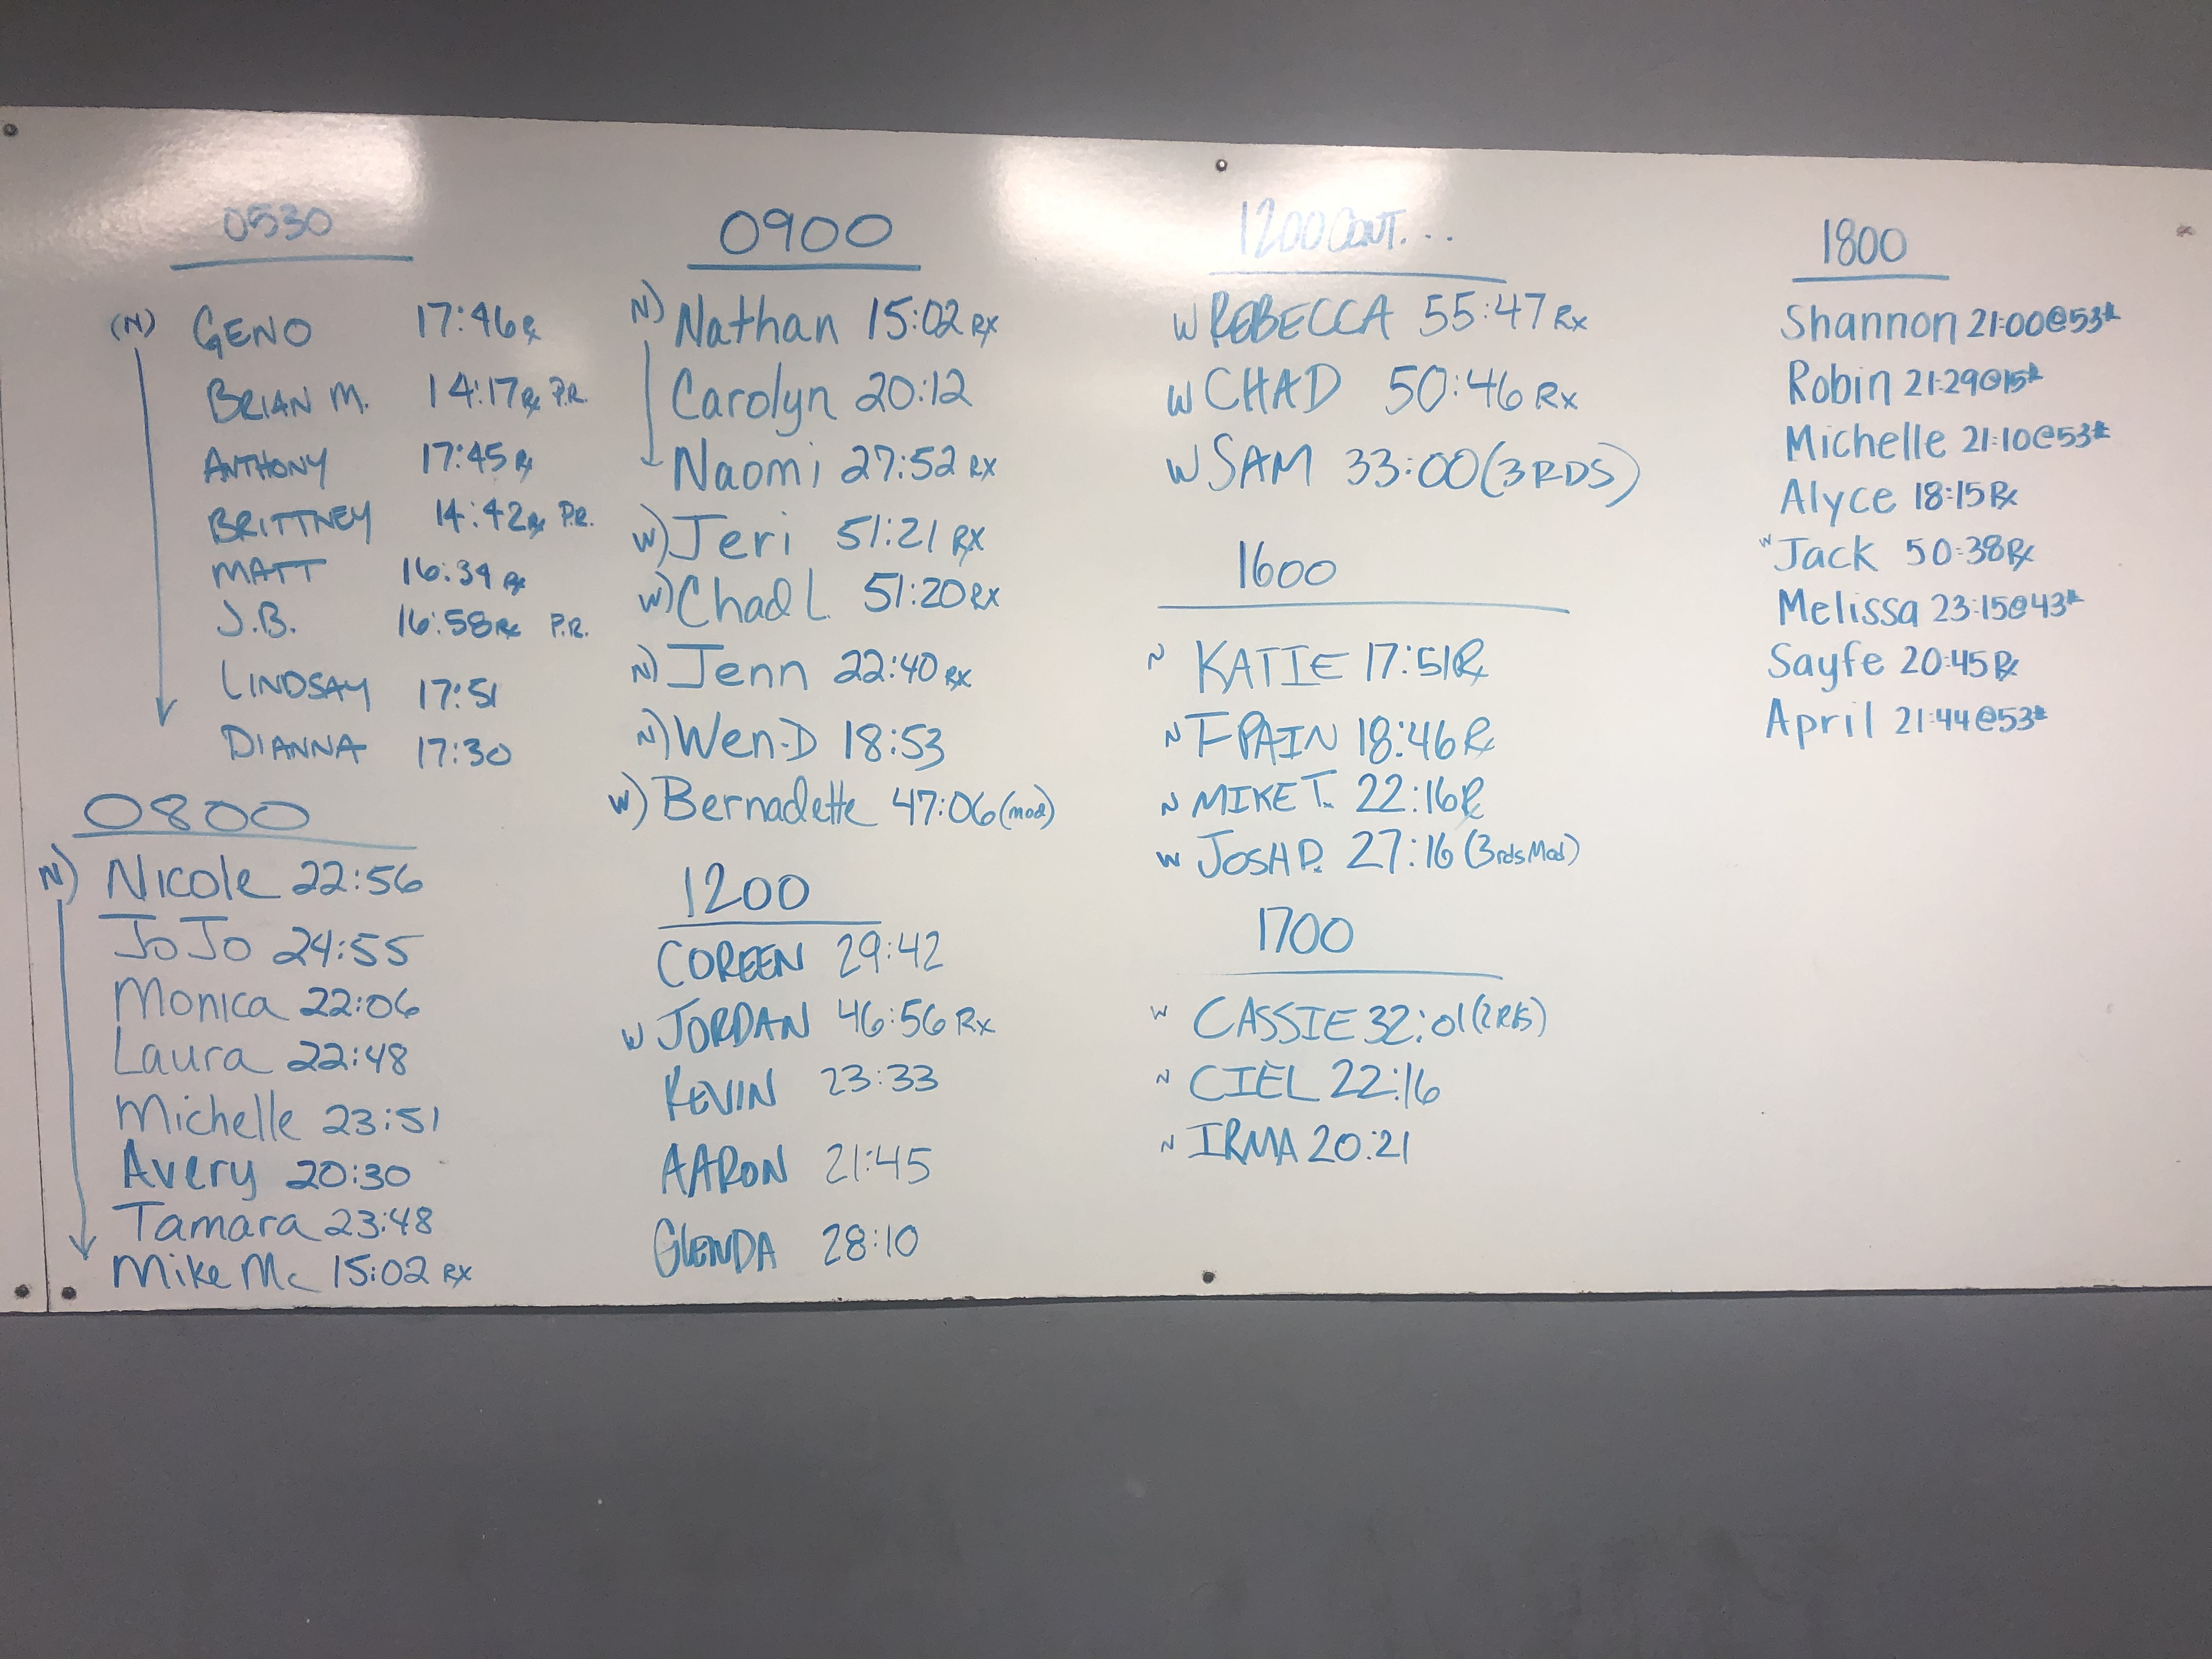 0530
(N) GENO 17:46 Rx
BRIAN M. 14:17 Rx P.R.
ANTHONY 17:45 Rx
BRITTNEY 14:42 Rx P.R.
MATT 16:39 Rx
J.B. 16:58 Rx P.R.
LINDSAY 17:51
DIANNA 17:30
0800
N) Nicole 22:56
JoJo 24:55
Monica 22:06
Laura 22:48
Michelle 23:51
Avery 20:30
Tamara 23:48
Mike Mc 15:02 Rx
0900
N) Nathan 15:02 Rx
Carolyn 20:12
Naomi 27:52 Rx
W) Jeri 51:21 Rx
W) Chad L. 51:20 Rx
N) Jenn 22:40 Rx
N) Wen-D 18:53
W) Bernadette 47:06 (mod)
1200
COREEN 29:42
W JORDAN 46:56 Rx
KEVIN 23:33
AARON 21:45
GLENDA 28:10
1200 CONT...
W REBECCA 55:47 Rx
W CHAD 50:46 Rx
W SAM 33:00 (3 RDS)
1600
N KATIE 17:51 Rx
N 18:46 Rx
N MIKE T. 22:16 Rx
W JOSH P. 27:16 (3rds Mod)
1700
W CASSIE 32:01 (2 RDS)
N CIEL 22:16
N IRMA 20:21
1800
Shannon 21:00@53#
Robin 21:29@15#
Michelle 21:10@53#
Alyce 18:15 Rx
W Jack 50:38 Rx
Melissa 23:15@43#
Sayfe 20:45 Rx
April 21:44@53#